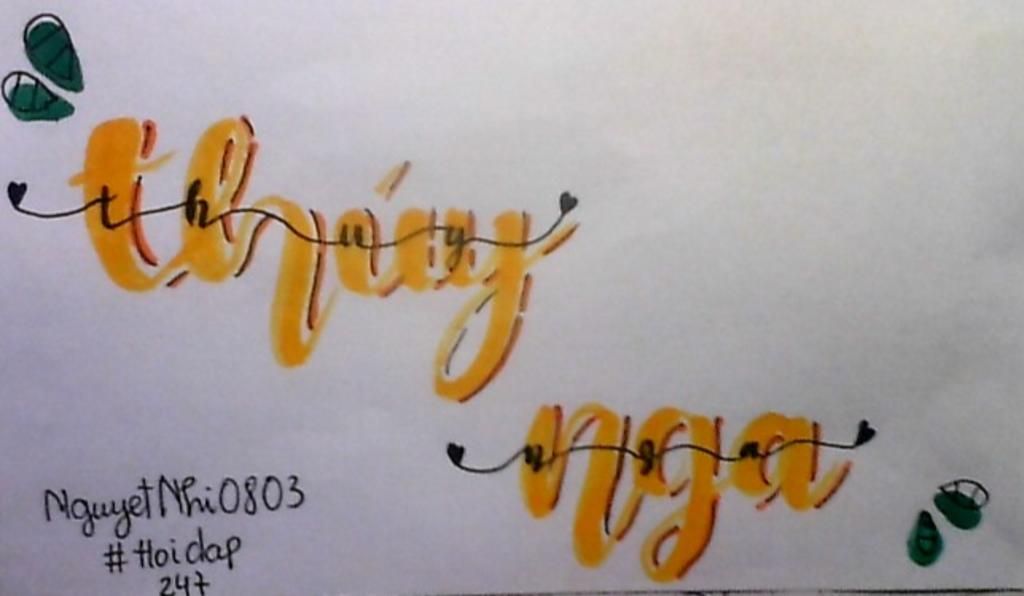 thúy
thuy
nga
nga
NguyetNhi0803
#Hoidap
247